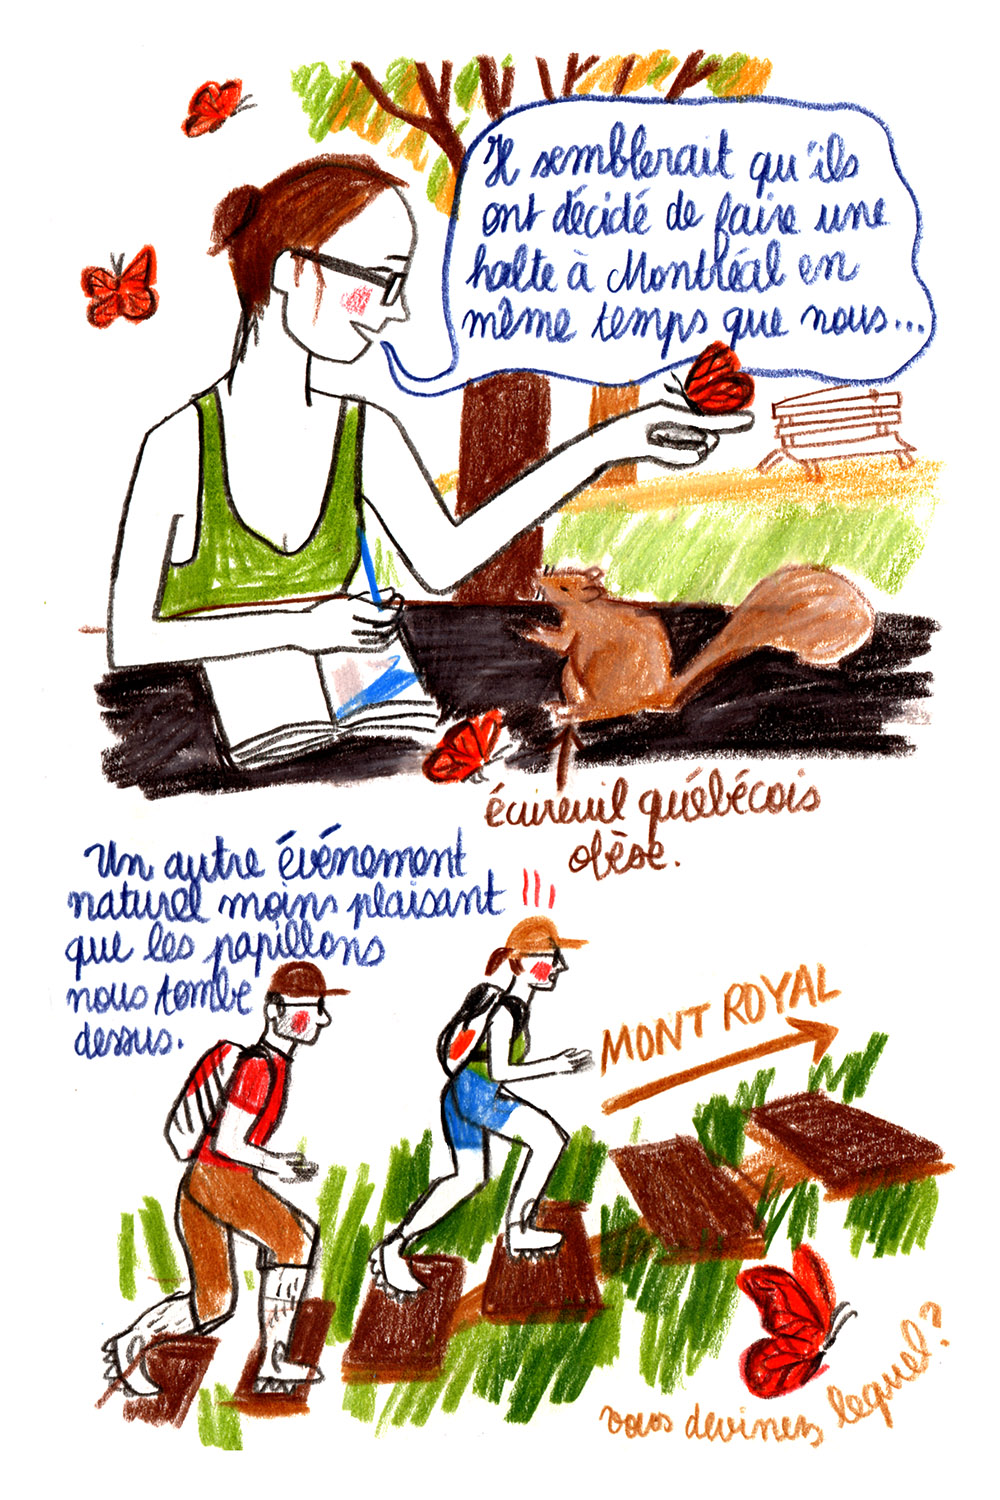 Il semblerait qu'ils
ont décidé de faire une
halte à Montréal en
même temps que nous...
écureuil québécois
obèse.
Un autre événement
naturel moins plaisant
que les papillons
nous tombe
dessus.
MONT ROYAL
vous devinez lequel?